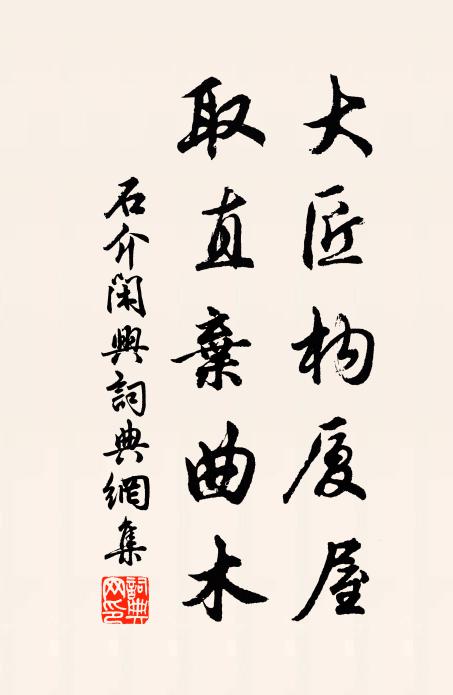 大匠构厦屋
取直棄曲木
石介閑興詞典網集
詞典
网印